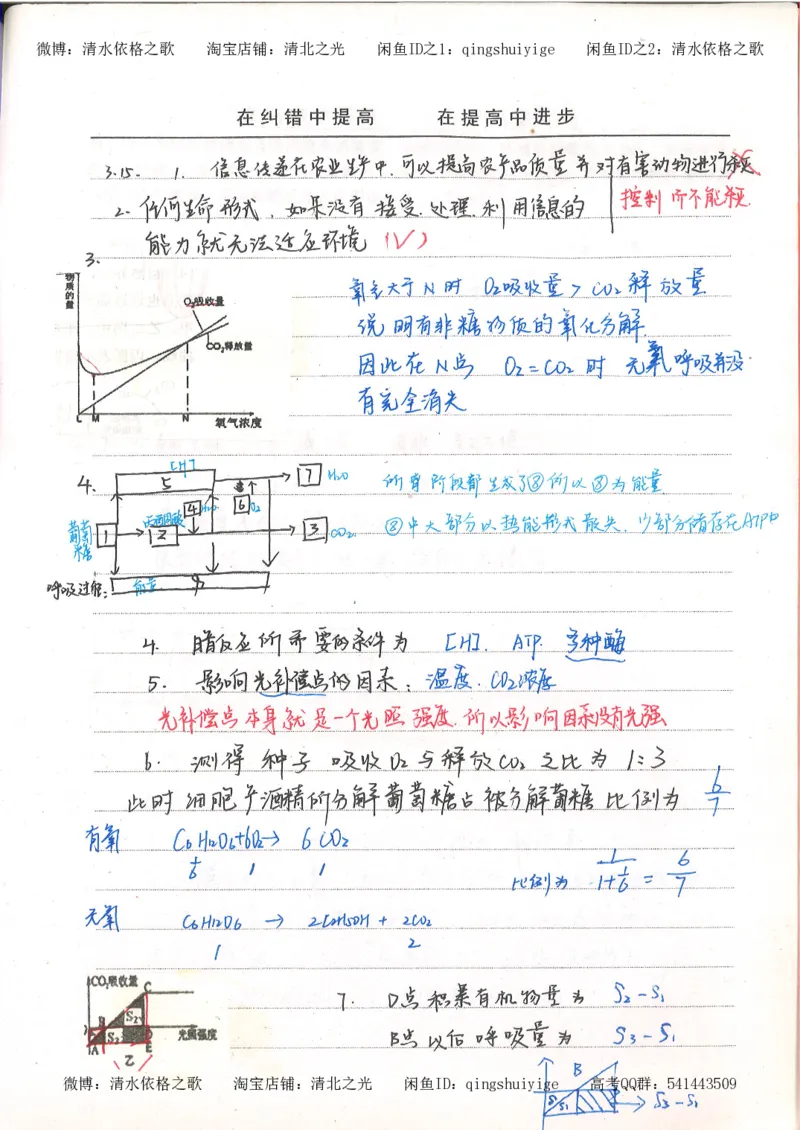 微博：清水依格之歌 淘宝店铺：清北之光 闲鱼ID之1：qingshuiyige 闲鱼ID之2：清水依格之歌
在纠错中提高 在提高中进步
3.15. 1. 信息传递在农业生产中,可以提高农产品质量并对有害动物进行杀死
控制而不能杀死.
2. 任何生命形式,如果没有接受.处理.利用信息的
能力就无法适应环境 (√)
3.
物质的量
O₂吸收量
CO₂释放量
L M N 氧气浓度
氧气大于N时 O₂吸收量>CO₂释放量
说明有非糖物质的氧化分解
因此在N点 O₂=CO₂时 无氧呼吸并没
有完全消失
4.
[H]
5
7 H₂O
葡萄糖 1 丙酮酸 2 4 H₂O 6 O₂
3 CO₂
呼吸过程: 能量 8
所有阶段都生成了⑧所以⑧为能量
⑧中大部分以热能形式散失,少部分储存在ATP中
4. 暗反应所需要的条件为 [H]. ATP. 多种酶
5. 影响光补偿点的因素: 温度. CO₂浓度
光补偿点本身就是一个光照强度.所以影响因素没有光强
6. 测得种子吸收O₂与释放CO₂之比为1:3
此时细胞产酒精所分解葡萄糖占被分解葡糖比例为 6/7
有氧 C₆H₁₂O₆+6O₂→ 6CO₂
1/6 1 1
比例为 1/(1+1/6) = 6/7
无氧 C₆H₁₂O₆ → 2C₂H₅OH + 2CO₂
1 2
CO₂吸收量
C
B S₂
光照强度
A E
7. D点积累有机物量为 S₂-S₁
B点以后呼吸量为 S₃-S₁
B
S₁ S₃-S₁
微博：清水依格之歌 淘宝店铺：清北之光 闲鱼ID：qingshuiyige 高考QQ群：541443509